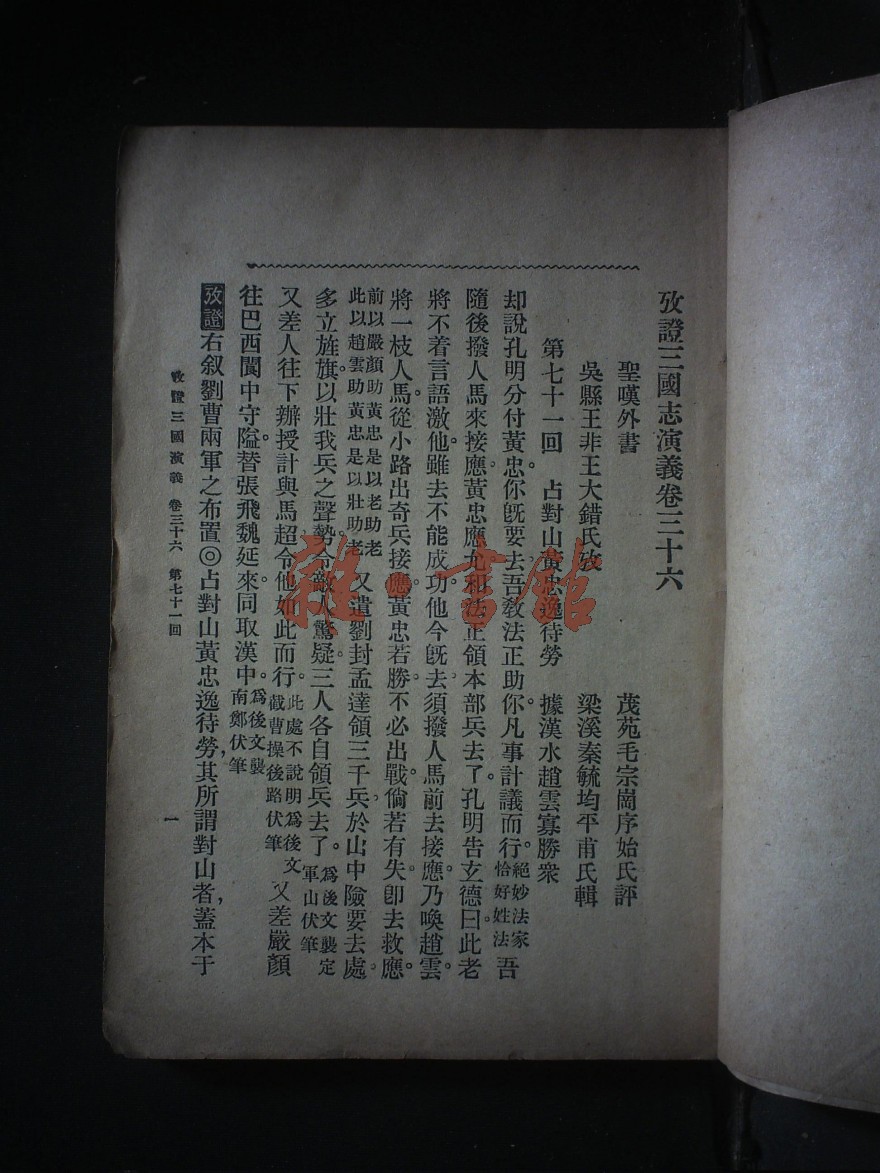 攷證三國志演義卷三十六
聖嘆外書　茂苑毛宗崗序始氏評
吳縣王非王大錯氏攷　梁溪秦毓均平甫氏輯
第七十一回　占對山黃忠逸待勞　據漢水趙雲寡勝衆
却說孔明分付黃忠。你旣要去。吾敎法正助你。凡事計議而行。絕妙法家恰好姓法吾
隨後撥人馬來接應。黃忠應允。和法正領本部兵去了。孔明告玄德曰。此老
將不着言語激他。雖去不能成功。他今旣去。須撥人馬前去接應。乃喚趙雲
將一枝人馬。從小路出奇兵接應黃忠。若勝不必出戰。倘若有失。卽去救應。
前以嚴顏助黃忠是以老助老此以趙雲助黃忠是以壯助老又遣劉封孟達領三千兵。於山中險要去處。
多立旌旗。以壯我兵之聲勢。令敵人驚疑。三人各自領兵去了。爲後文襲定軍山伏筆
又差人往下辦授計與馬超。令他如此而行。此處不說明爲後文截曹操後路伏筆又差嚴顏
往巴西閬中守隘。替張飛魏延來。同取漢中。爲後文襲南鄭伏筆
攷證右叙劉曹兩軍之布置◎占對山黃忠逸待勞，其所謂對山者，蓋本于
攷證三國演義　卷三十六　第七十一回　一
雜·書館